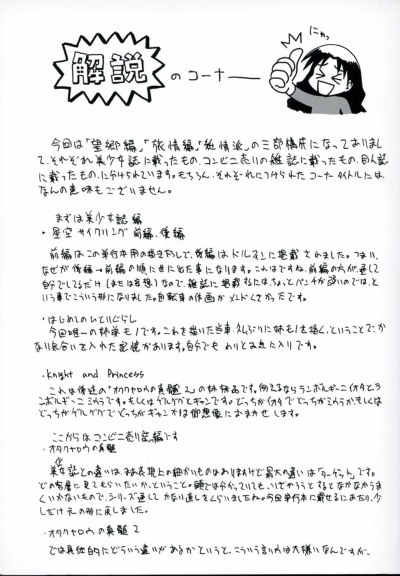 解説 のコーナー
にゃっ
今回は「望郷編」「旅情編」「純情派」の三部構成になっておりまし
て、それぞれ美少女誌に載ったもの、コンビニ売りの雑誌に載ったもの、同人誌
に載ったものに分けられています。もちろん、それぞれにつけられたコーナータイトルには
なんの意味もございません。
まずは美少女誌編
・星空サイクリング 前編、後編
前編はこの単行本用の描き下ろしで、後編はドルオンに掲載されました。つまり、
なぜか後編→前編の順に世に出た事になります。これはですね、前編の方が、通して
自分でしてるだけ(または妄想)なので、雑誌に掲載するには、ちょっとパンチが弱いのでは、と
いう事でこういう形になりました。自転車の作画がメンドくさかったです。
・はじめてのひとりぐらし
今回唯一の姉弟モノです。これを描いた当時、久しぶりに姉モノを描く、ということで、か
なり気合いを入れた記憶があります。自分でもわりとお気に入りです。
・Knight and Princess
これは後述の「オタクヤロウの真髄2」の姉妹品です。例えるならランボルギーニイオタとラ
ンボルギーニミウラです。もしくはゲルググとギャンです。どっちがイオタでどっちがミウラかもしくは
どっちがゲルググでどっちがギャンかは御想像におまかせします。
ここからはコンビニ売り誌編です
・オタクヤロウの真髄
美少女誌との違いは、まあ表現上の細かいものはありますけど最大の違いは「ターゲット」です。
どの客層に見てもらいたいか、ということ。頭では分かっていても、いざやろうとするとなかなかうま
くいかないもので、シリーズ通してかなり直しをくらいましたね。今回単行本に載せるにあたり、少
しだけ元の形に戻しました。
・オタクヤロウの真髄2
では具体的にどういう違いがあるかというと、こういう言い方は大嫌いなんですが、